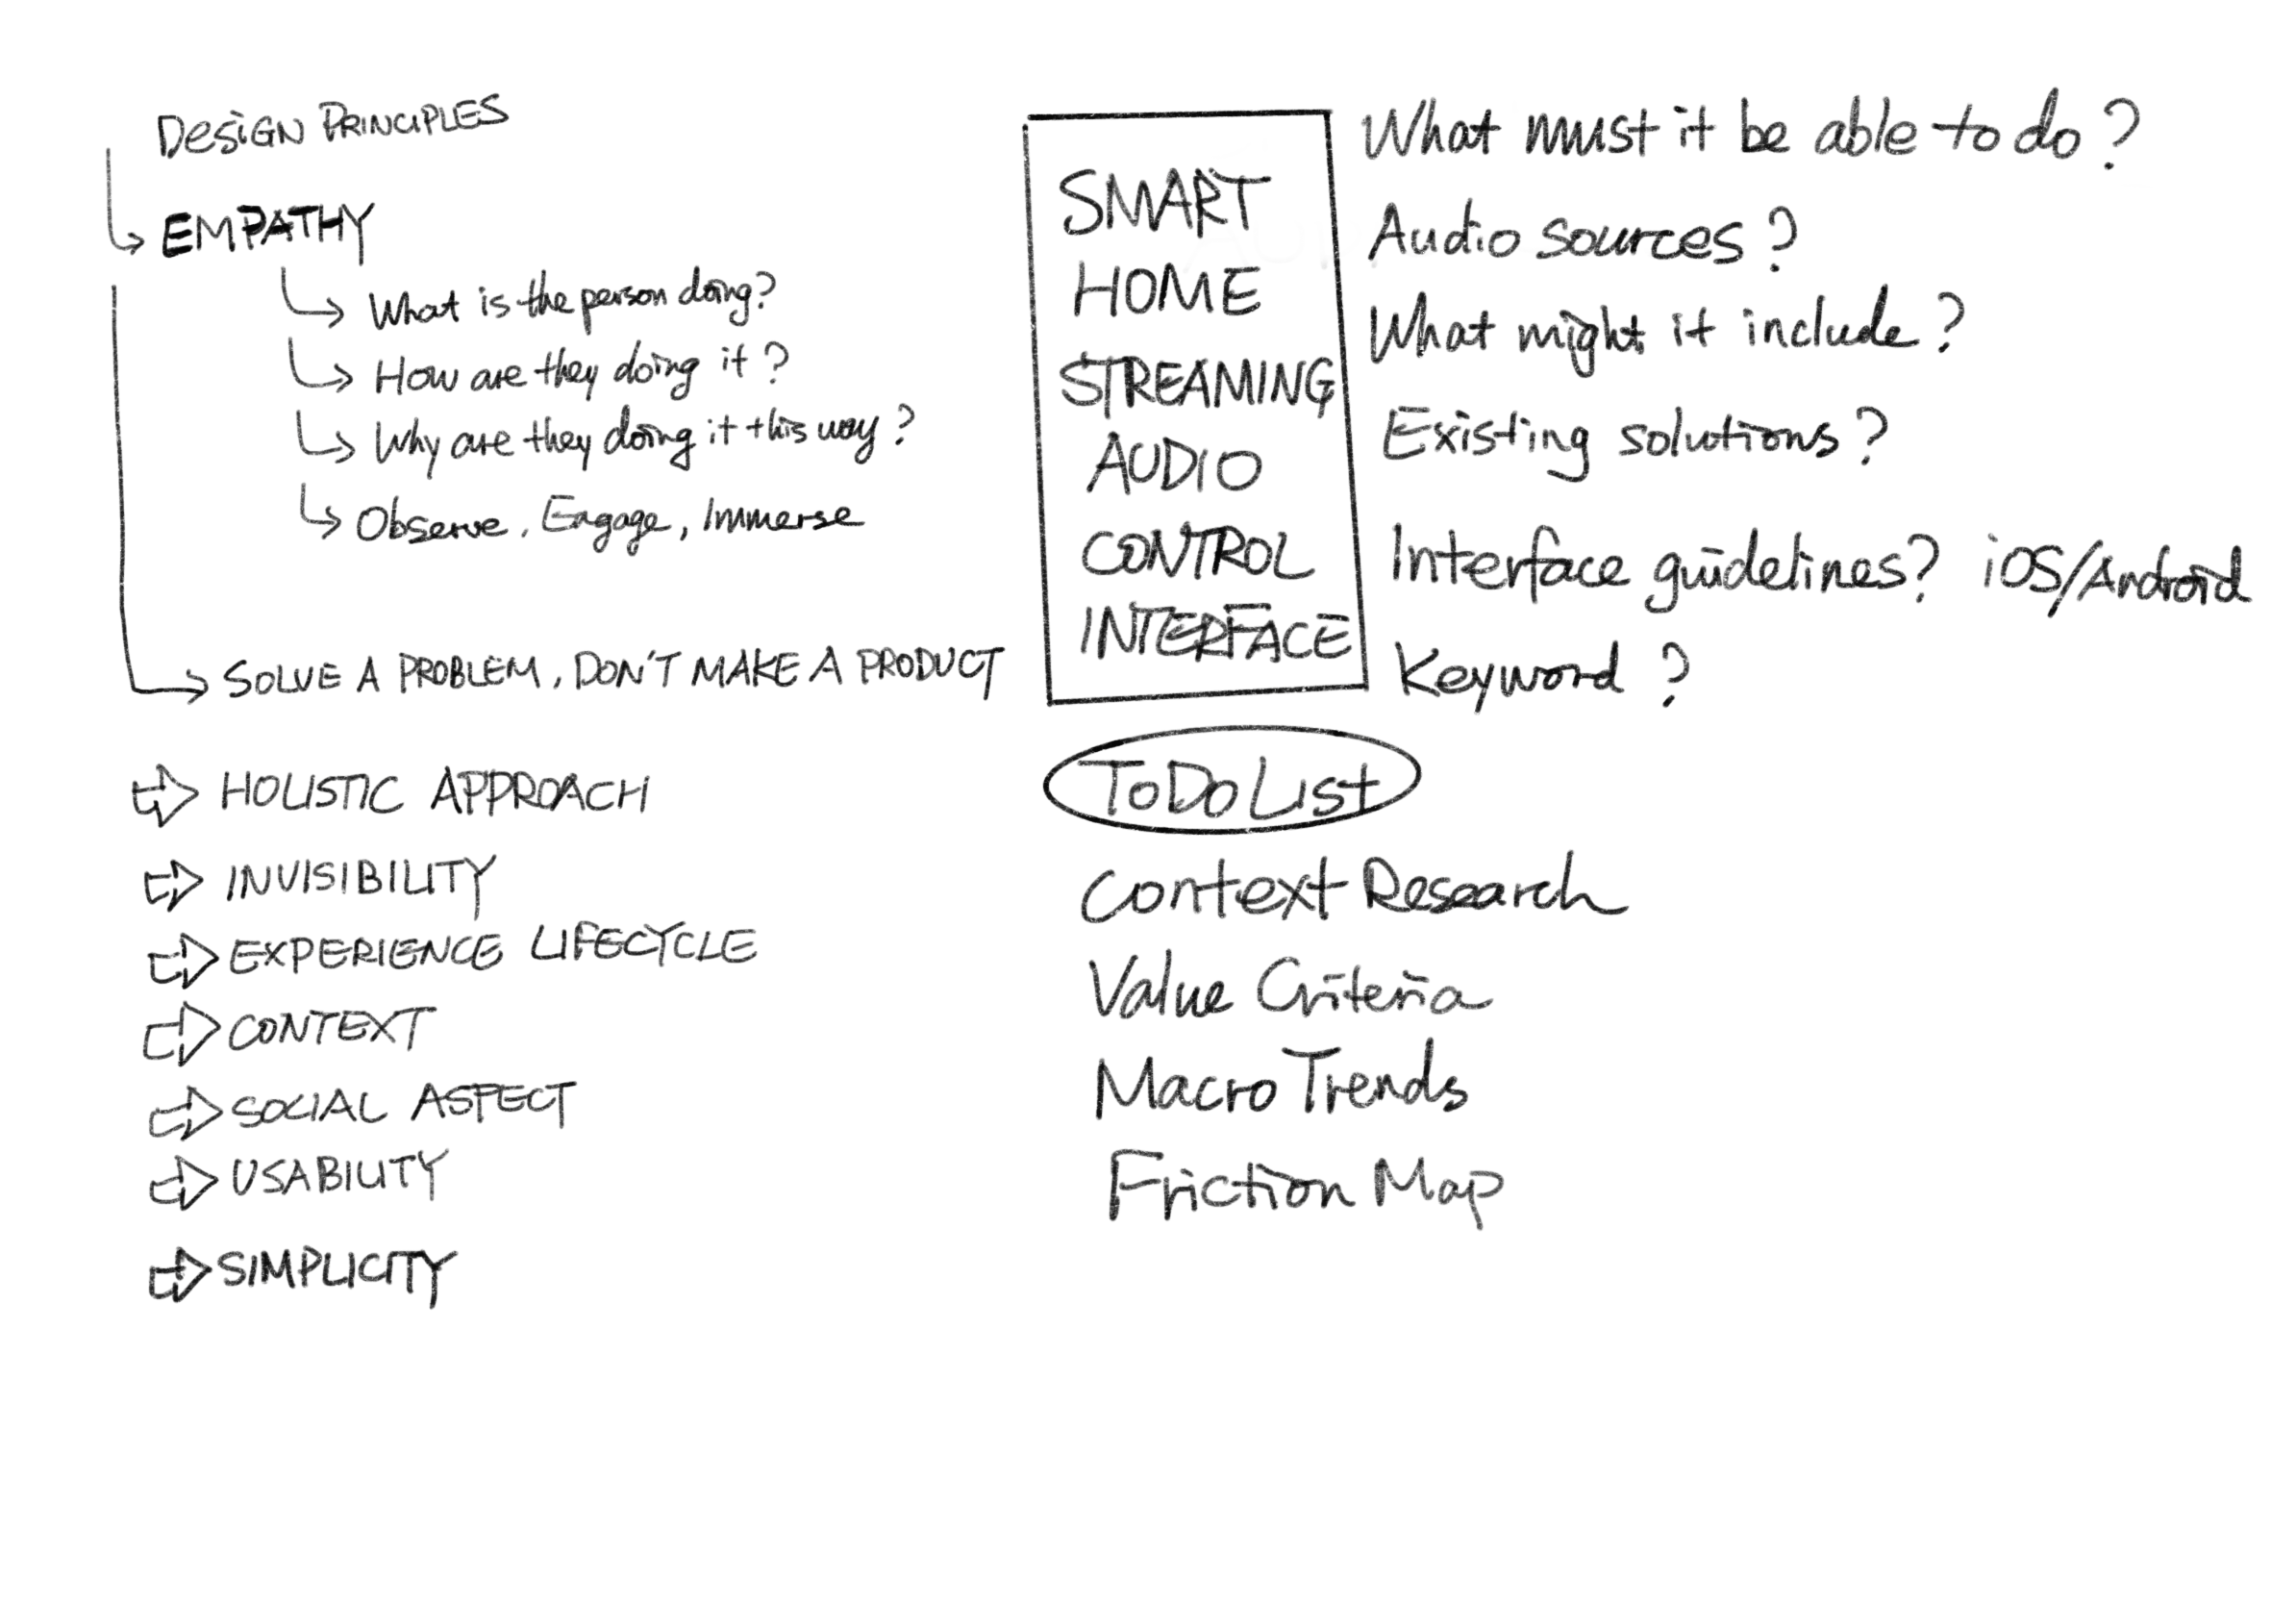 DESIGN PRINCIPLES
EMPATHY
What is the person doing?
How are they doing it?
Why are they doing it this way?
Observe, Engage, Immerse
SOLVE A PROBLEM, DON'T MAKE A PRODUCT
HOLISTIC APPROACH
INVISIBILITY
EXPERIENCE LIFECYCLE
CONTEXT
SOCIAL ASPECT
USABILITY
SIMPLICITY
SMART
HOME
STREAMING
AUDIO
CONTROL
INTERFACE
What must it be able to do?
Audio sources?
What might it include?
Existing solutions?
Interface guidelines? iOS/Android
Keyword?
ToDo List
Context Research
Value Criteria
Macro Trends
Friction Map